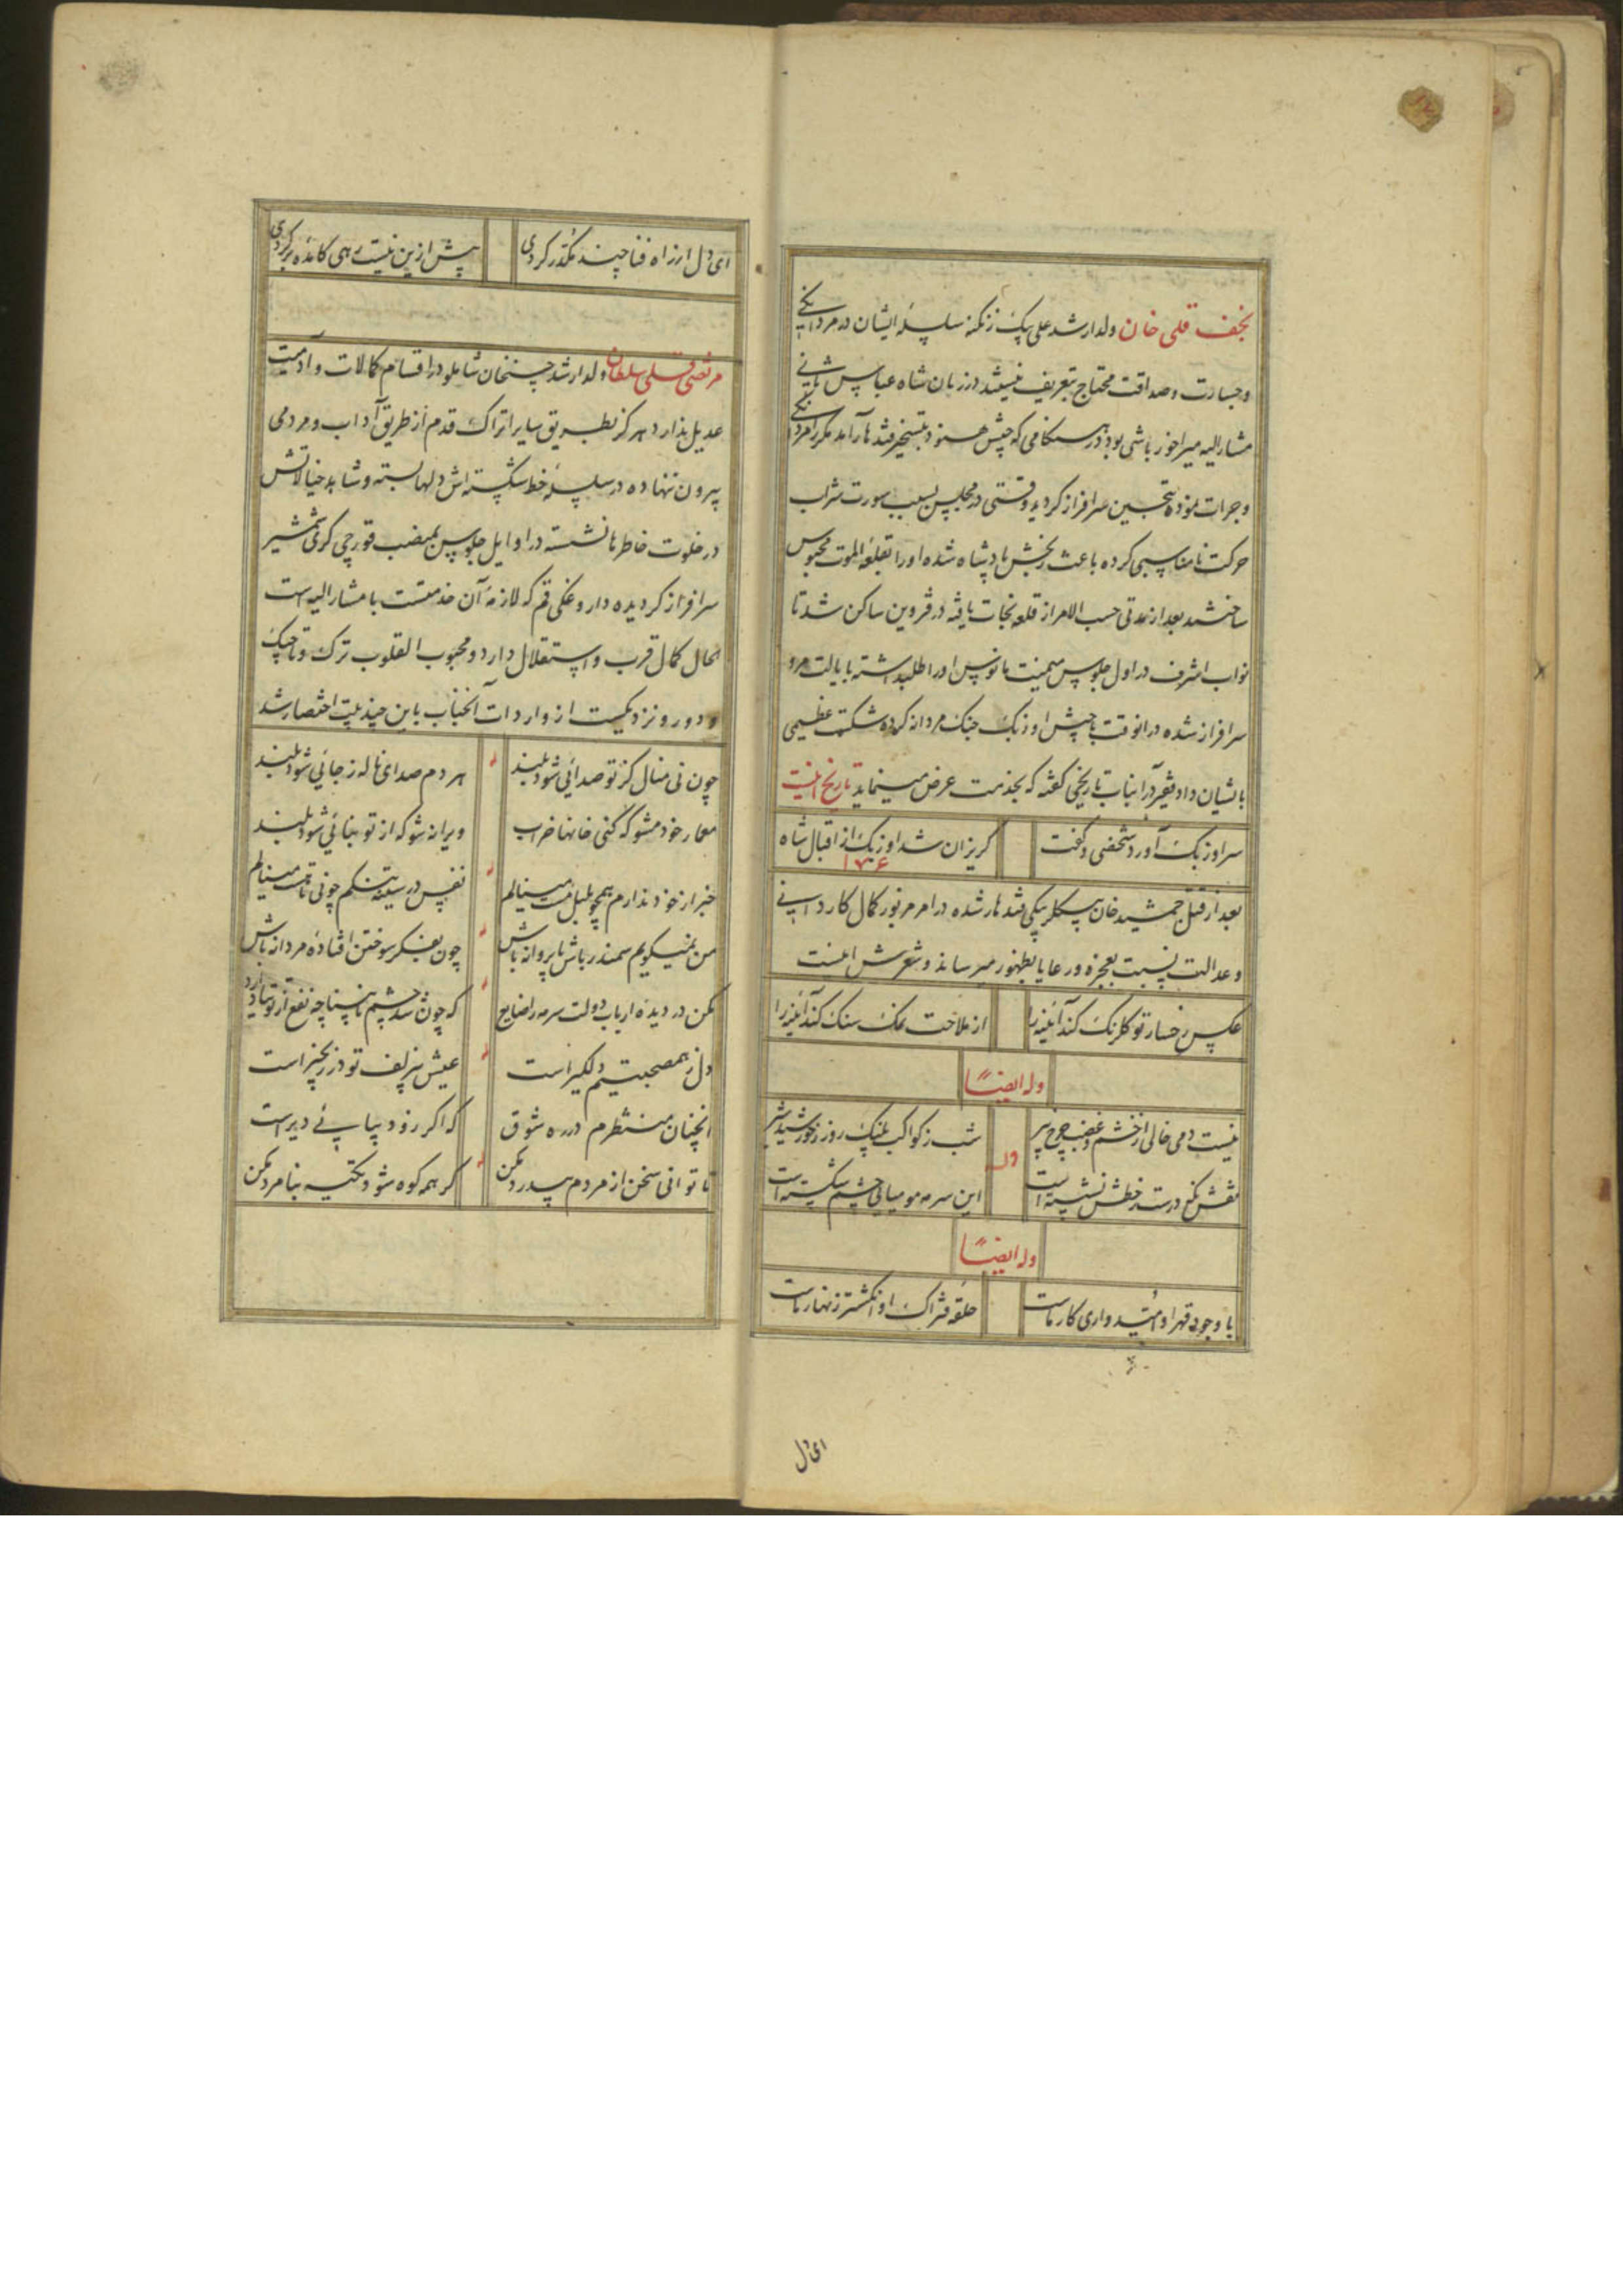 نجف قلی خان ولد ارشد علی بیک زنکنه سلسله ایشان در مردانکی
و جسارت و صداقت محتاج بتعریف نیستند در زمان شاه عباس ثانی
مشارالیه میراخور باشی بود در هنکامی که جیش هنود بتسخیر قندهار آمد مکرر مردانکی
و جرات نموده بتحسین سرافراز کردید وقتی در مجلس بسبب سورت شراب
حرکت نامناسبی کرده باعث رنجش پادشاه شده او را بقلعه الموت محبوس
ساختند بعد از مدتی حسب الامر از قلعه نجات یافته در قزوین ساکن شد تا
نواب اشرف در اول جلوس میمنت مانوس او را طلبداشته بایالت مرو
سرافراز شده در انوقت با جیش اوزبک جنک مردانه کرده شکست عظیمی
بایشان داد فقیر در آنباب تاریخی کفته که بخدمت عرض مینماید تاریخ اینست
سر اوزبک آورد شخصی و کفت
کریزان شد اوزبک از اقبال شاه
بعد از قتل جمشید خان بیکلر بیکی قندهار شده در امر مزبور کمال کاردانی
و عدالت نسبت بعجزه و رعایا بظهور میرساند و شعرش اینست
عکس رخسار تو کلرنک کند آینه را
از ملاحت نمک سنک کند آینه را
وله ایضاً
نیست دمی خالی از خشم و غضب چرخ پیر
شب ز کواکب پلنک روز ز خورشید شیر
وله
نقش نکین درست ز خطش نشسته است
این سرمه مومیایی چشم شکسته است
وله ایضاً
با وجود قهر او امیدواری کار ماست
حلقه فتراک او انکشتر زنهار ماست
ای دل
ای دل از راه فنا چند مکدر کردی
پیش ازین نیست رهی کامده برکردی
مرتضی قلی سلطان ولد ارشد حسنخان شاملو در اقسام کمالات و آدمیت
عدیل ندارد هرکز بطریق سایر اتراک قدم از طریق آداب و مردمی
بیرون ننهاده در سلسله خط شکسته اش دلها بسته و شاهد خیالاتش
در خلوت خاطرها نشسته در اوایل جلوس بمنصب قورچی کری شمشیر
سرافراز کردیده داروغکی قم که لازمه آن خدمتست با مشارالیه است
الحال کمال قرب و استقلال دارد و محبوب القلوب ترک و تاجیک
و دور و نزدیکست از واردات آنجناب باین چند بیت اختصار شد
چون نی منال کز تو صدائی شود بلند
هر دم صدای ناله ز جائی شود بلند
معمار خود مشو که کنی خانها خراب
ویرانه شو که از تو بنائی شود بلند
خبر از خود ندارم همچو بلبل مست مینالم
نفس در سینه تنکم چو نی تا هست مینالم
من نمیکویم سمندر باش یا پروانه باش
چون بفکر سوختن افتاده مردانه باش
مکن در دیده ارباب دولت سرمه را ضایع
که چون شد چشم نابینا چه نفع از توتیا دارد
دل ز همصحبتیم دلکیر است
عیش بی زلف تو در زنجیر است
آنچنان منتظرم در ره شوق
که اکر زود بیا بی دیر است
تا توانی سخن از مردم بیدرد مکن
کر همه کوه شود تکیه بنامرد مکن